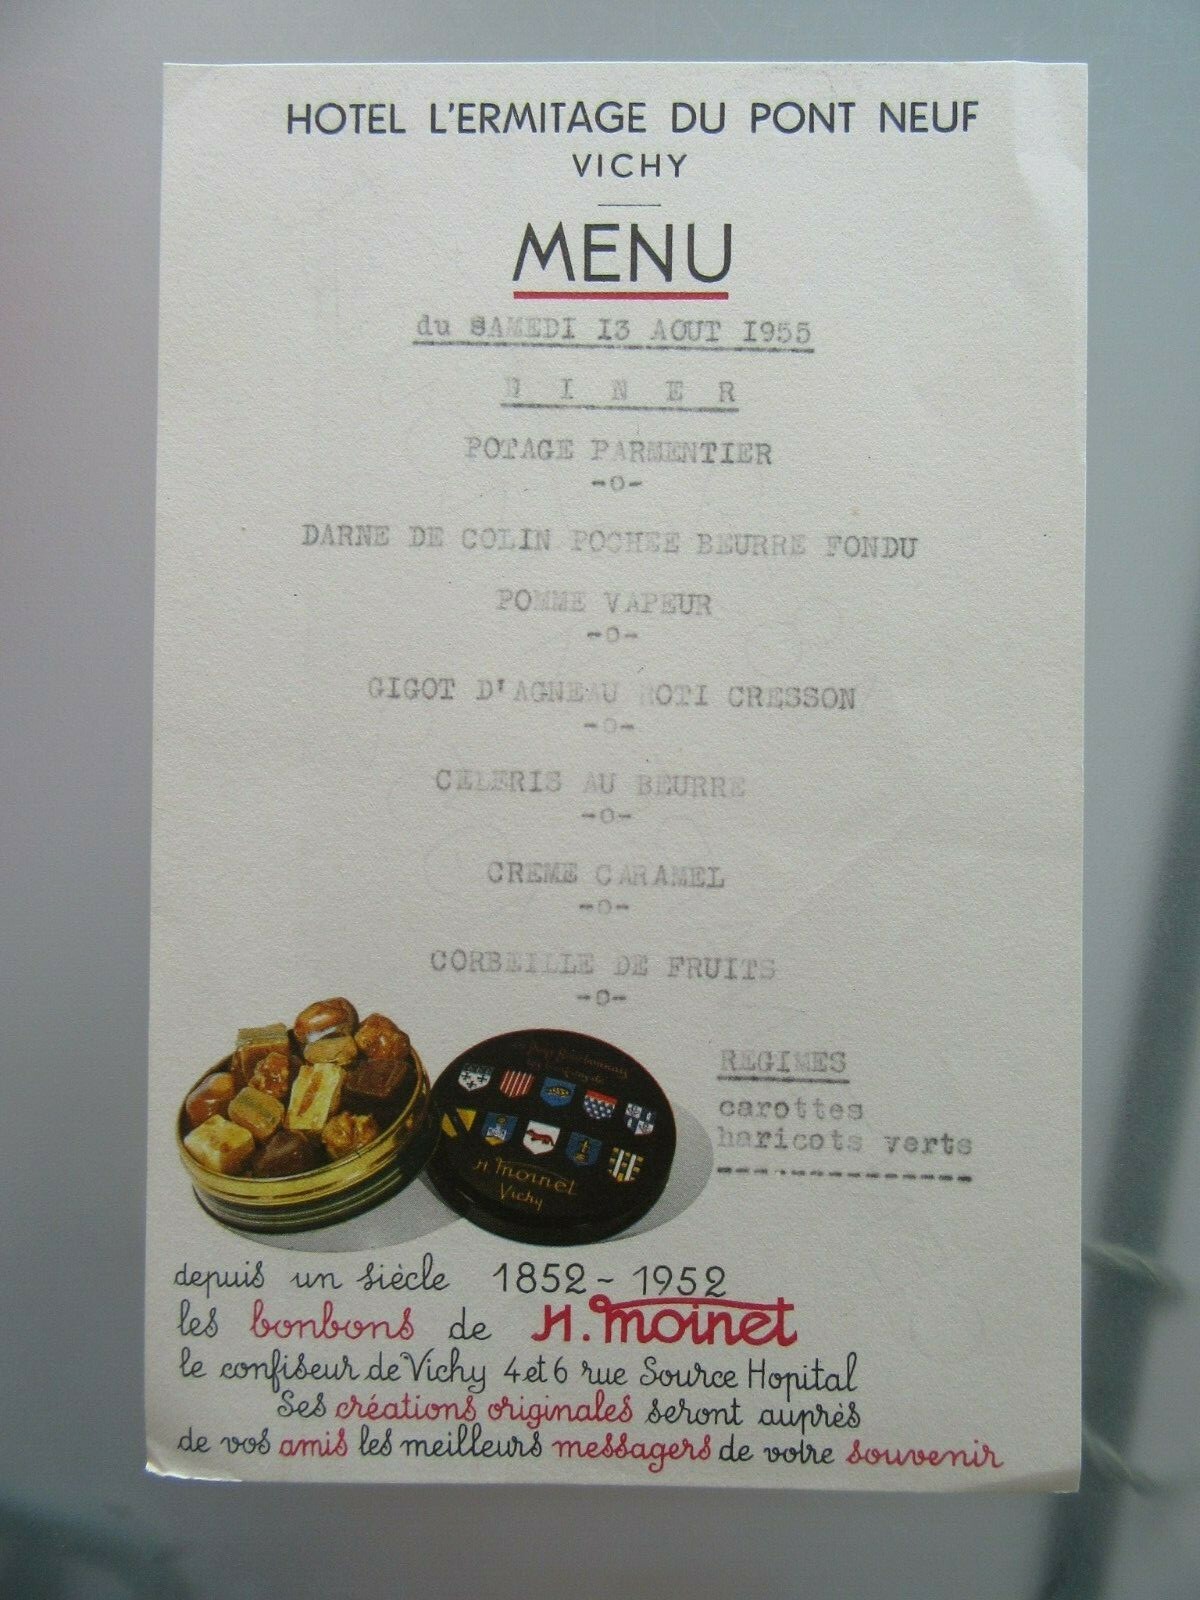 HOTEL L'ERMITAGE DU PONT NEUF
VICHY
MENU
du SAMEDI 13 AOUT 1955
D I N E R
POTAGE PARMENTIER
-o-
DARNE DE COLIN POCHEE BEURRE FONDU
POMME VAPEUR
-o-
GIGOT D'AGNEAU ROTI CRESSON
-o-
CELERIS AU BEURRE
-o-
CREME CARAMEL
-o-
CORBEILLE DE FRUITS
-o-
REGIMES
carottes
haricots verts
H. Moinet
Vichy
depuis un siècle 1852 - 1952
les bonbons de H. Moinet
le confiseur de Vichy 4 et 6 rue Source Hopital
Ses créations originales seront auprès
de vos amis les meilleurs messagers de votre souvenir